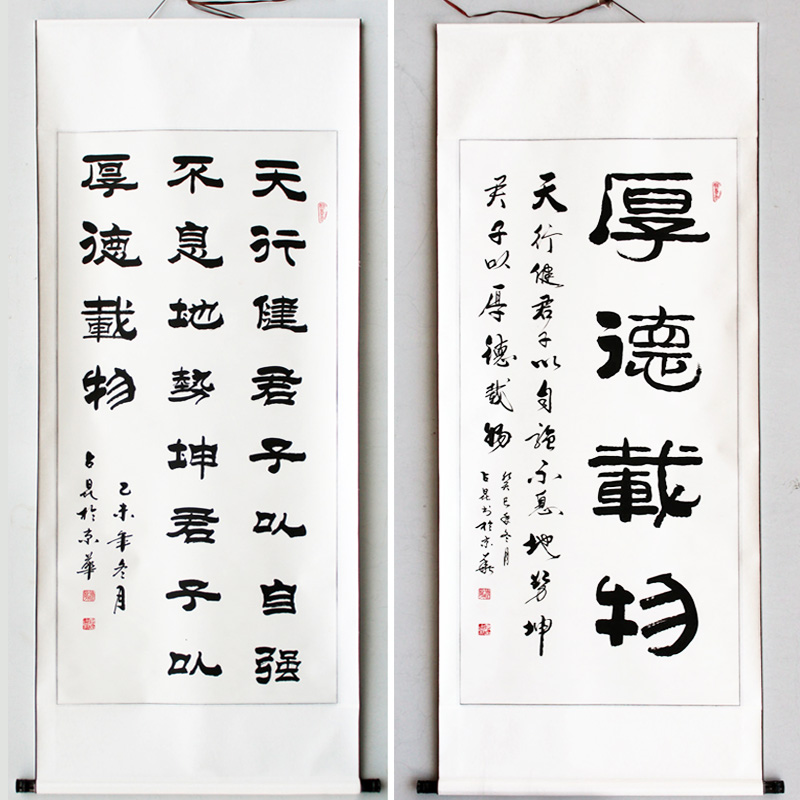 天行健君子以自强
不息地勢坤君子以
厚德載物
乙未年冬月
占昆於京華
厚德載物
天行健君子以自強不息地势坤
君子以厚德載物
癸巳年冬月
占昆书於京華